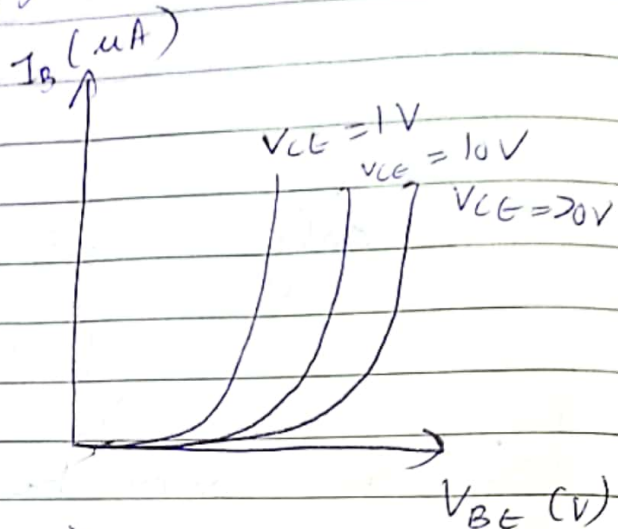 I_B (μA)
V_CE = 1V
V_CE = 10V
V_CE = 20V
V_BE (V)